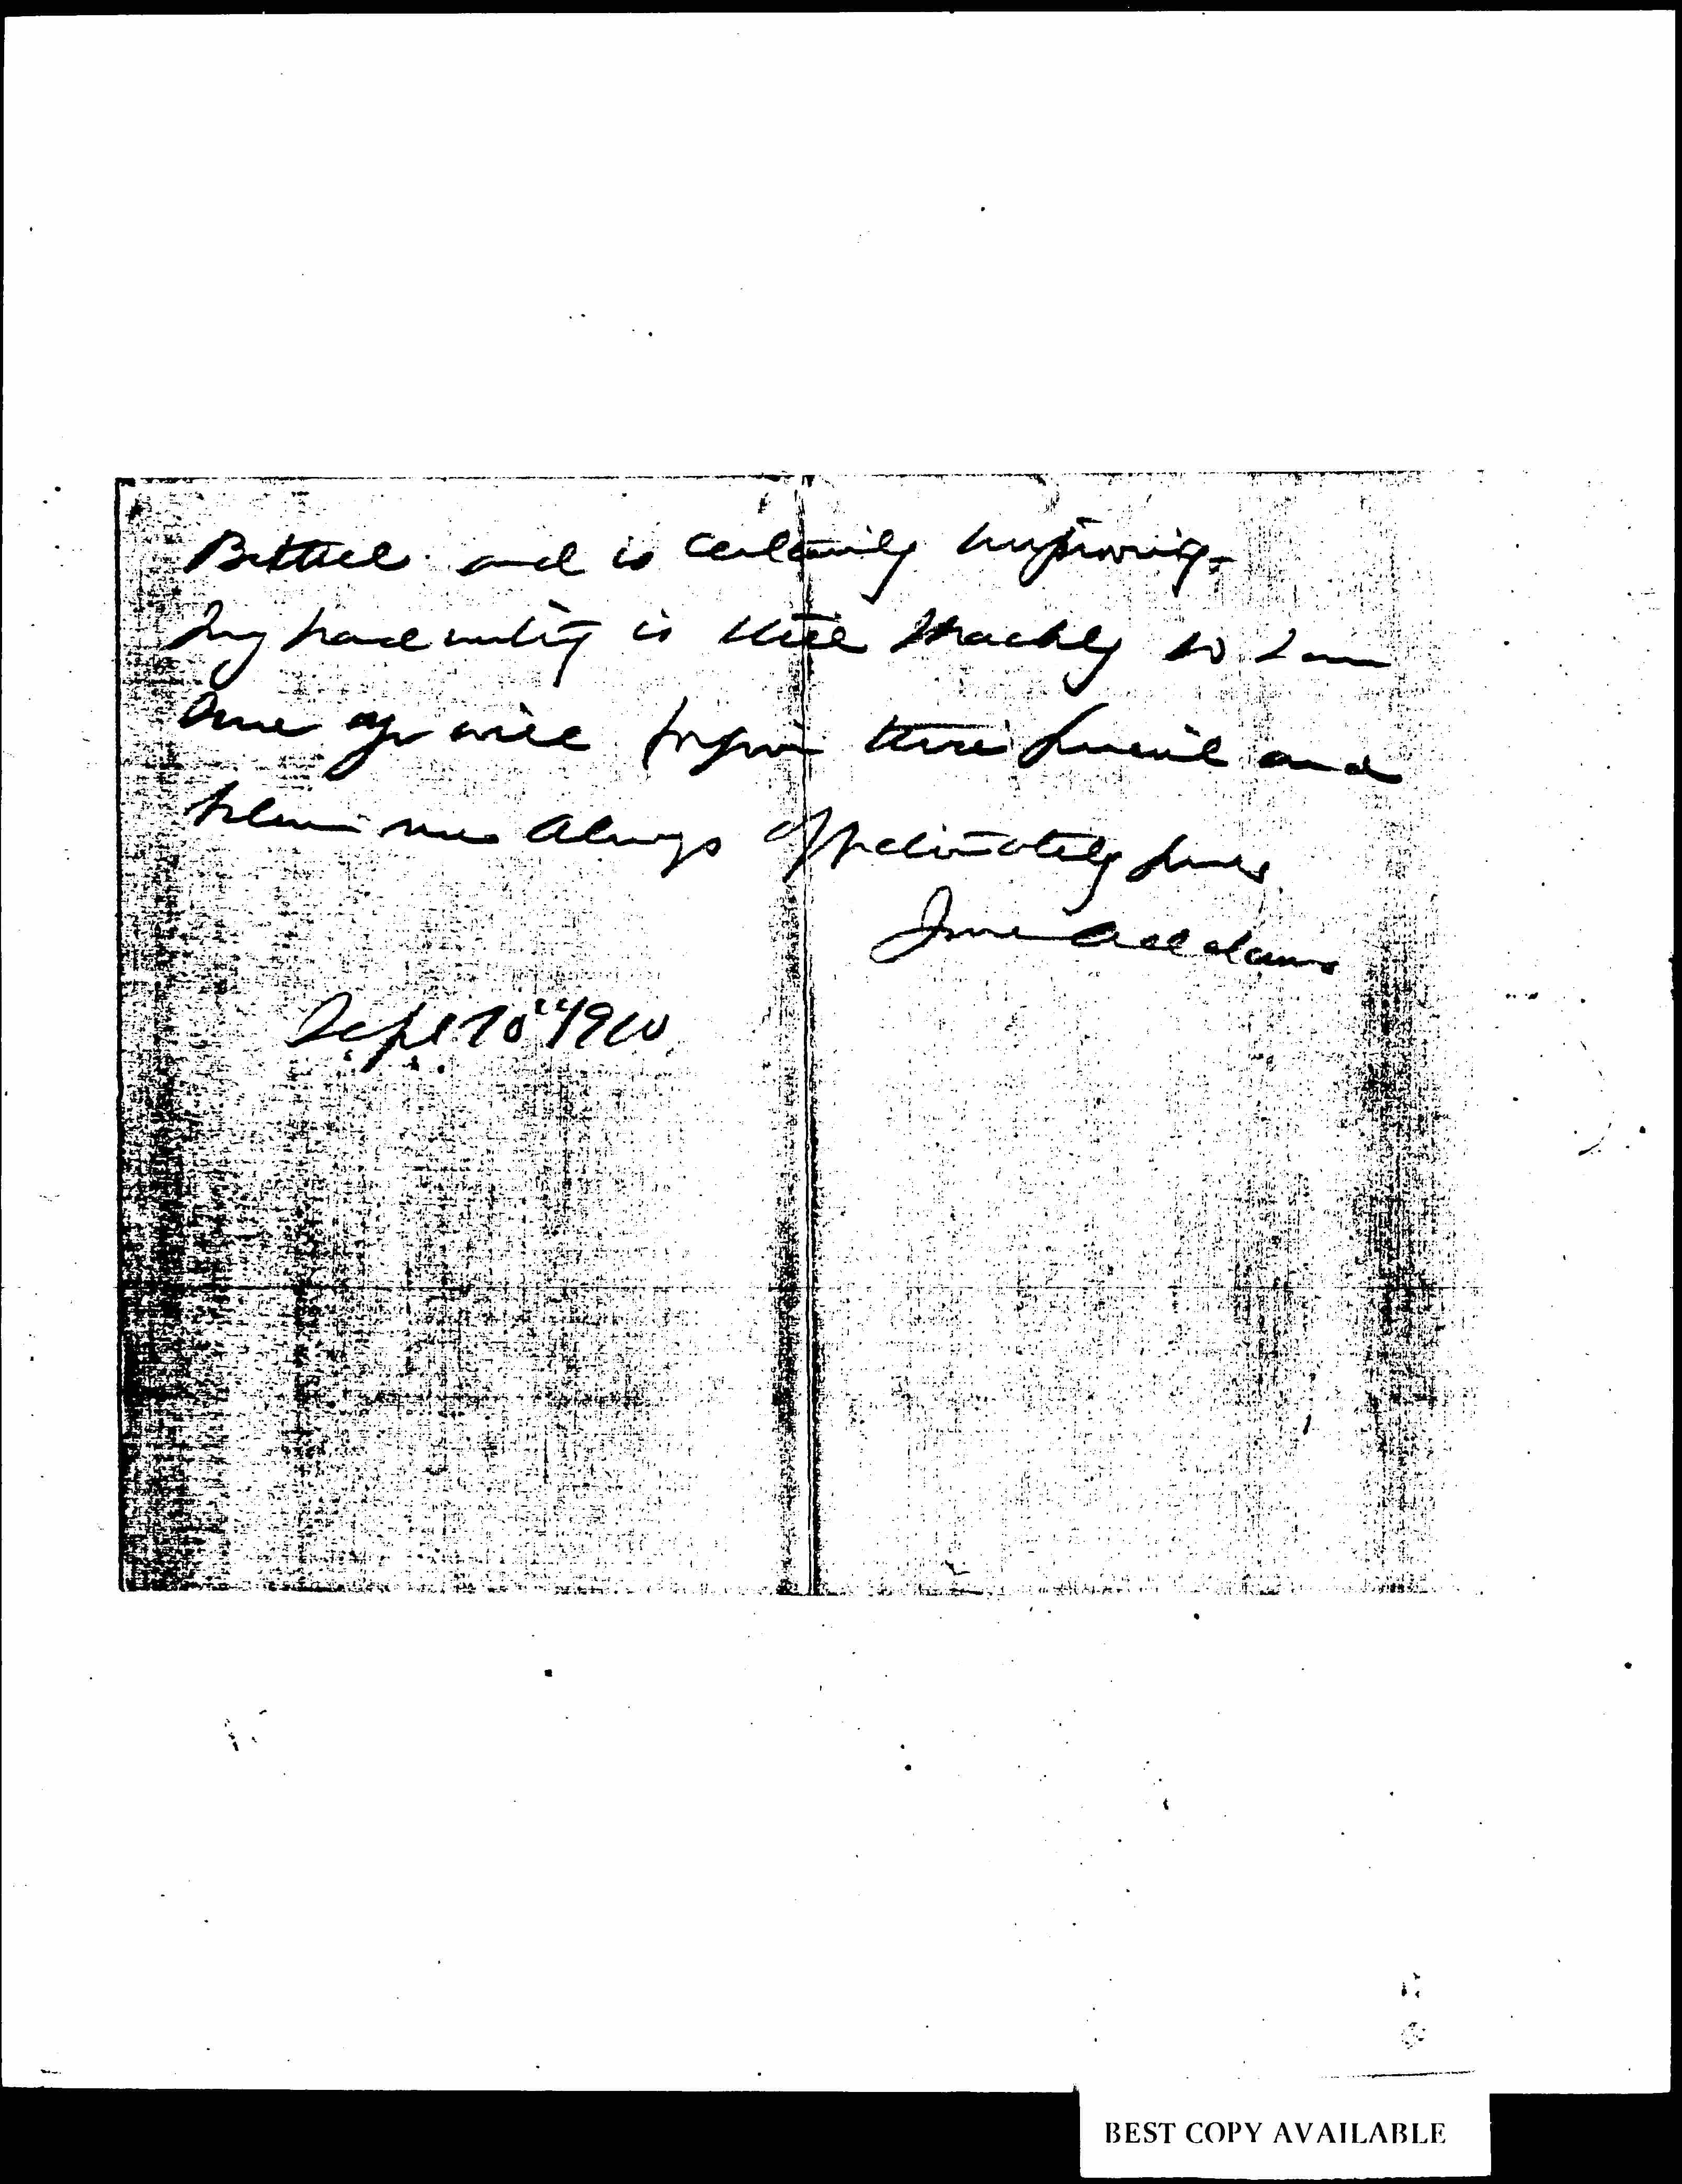 Bethel and is certainly improving.
My hand writing is still shaky so I am
sure you will forgive this pencil and
believe me always affectionately yours
Jane Addams
Sept 10" 1910
BEST COPY AVAILABLE